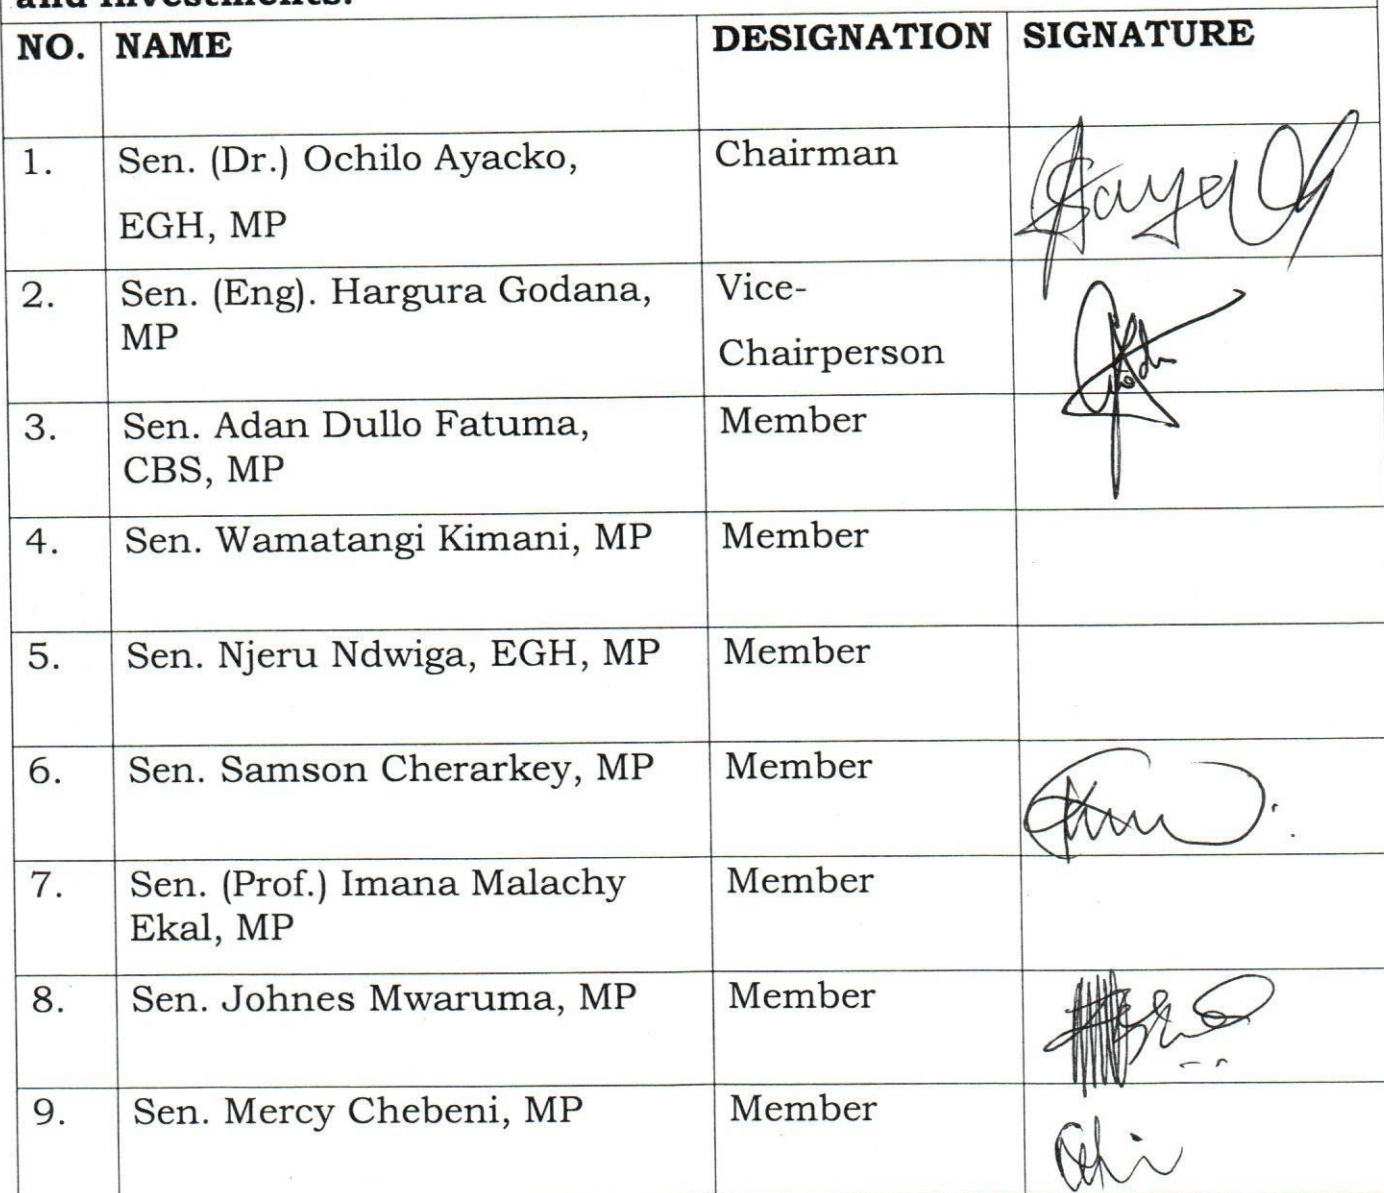 and investments.
NO. NAME DESIGNATION SIGNATURE
1. Sen. (Dr.) Ochilo Ayacko, Chairman
EGH, MP
2. Sen. (Eng). Hargura Godana, Vice-
MP Chairperson
3. Sen. Adan Dullo Fatuma, Member
CBS, MP
4. Sen. Wamatangi Kimani, MP Member
5. Sen. Njeru Ndwiga, EGH, MP Member
6. Sen. Samson Cherarkey, MP Member
7. Sen. (Prof.) Imana Malachy Member
Ekal, MP
8. Sen. Johnes Mwaruma, MP Member
9. Sen. Mercy Chebeni, MP Member